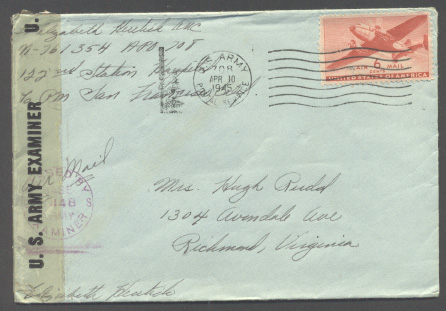 Elizabeth ANC
APO 708
122nd Station Hospital
c/o PM San Francisco
U.S. ARMY
708
APR 10
1945
POSTAL SERVICE
AIR MAIL
6 CENTS
UNITED STATES OF AMERICA
U. S. ARMY EXAMINER
U.
Air Mail
ARMY
EXAMINER
Mrs. Hugh Rudd
1304 Avondale Ave
Richmond, Virginia
Elizabeth